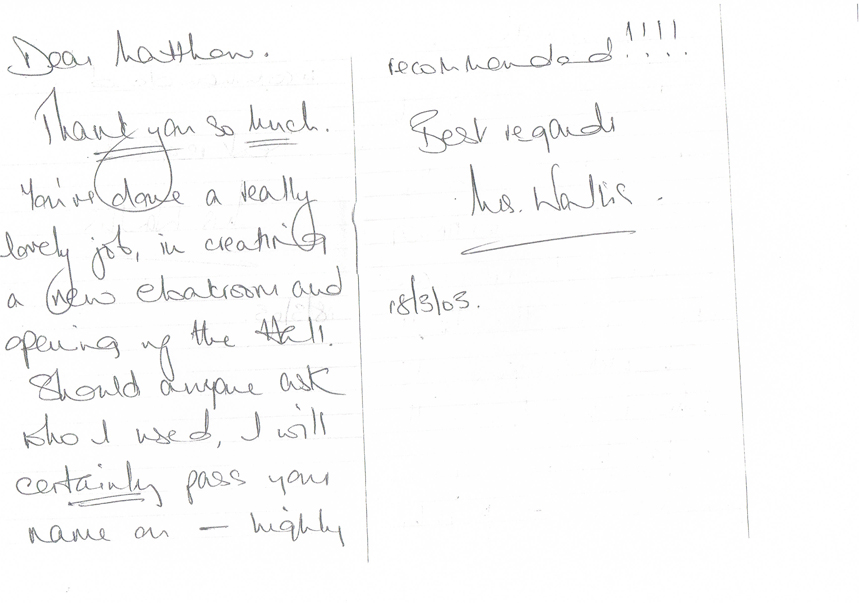 Dear Matthew.
Thank you so much.
You've done a really
lovely job, in creating
a new cloakroom and
opening up the Hall.
Should anyone ask
who I used, I will
certainly pass your
name on – highly
recommended!!!!
Best regards
Mrs. Wallis.
18/3/03.